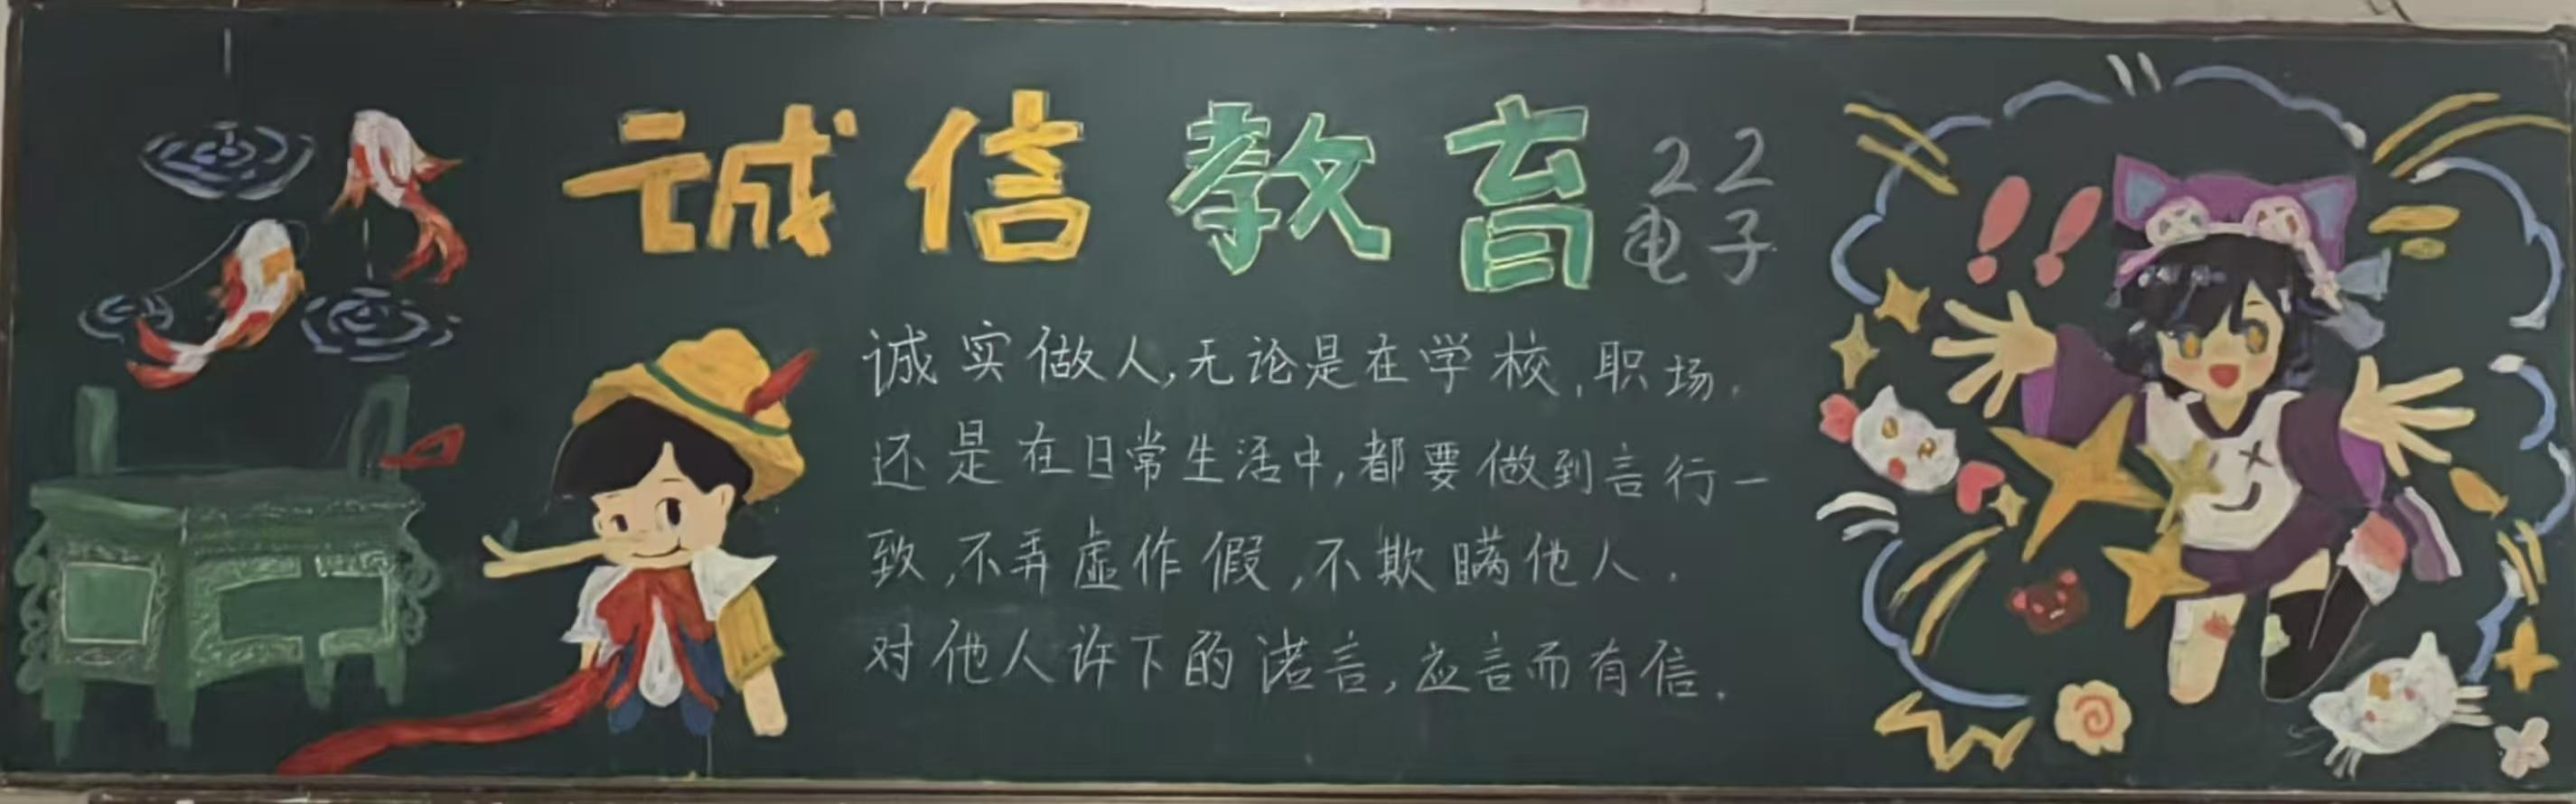 誠信教育
22
电子
诚实做人,无论是在学校,职场,
还是在日常生活中,都要做到言行一
致,不弄虚作假,不欺瞒他人.
对他人许下的诺言,应言而有信.